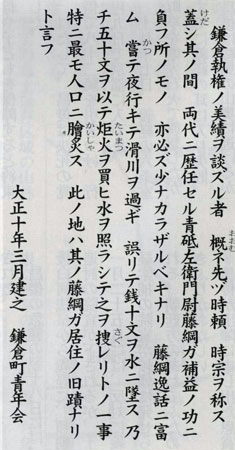 鎌倉執権ノ美績ヲ談ズル者　概ネ先ヅ時頼　時宗ヲ称ス
蓋シ其ノ間　両代ニ歴任セル青砥左衛門尉藤綱ガ補益ノ功ニ
負フ所ノモノ　亦必ズ少ナカラザルベキナリ　藤綱逸話ニ富
ム　嘗テ夜行キテ滑川ヲ過ギ　誤リテ銭十文ヲ水ニ墜ス　乃
チ五十文ヲ以テ炬火ヲ買ヒ水ヲ照ラシテ之ヲ捜レリトノ一事
特ニ最モ人口ニ膾炙ス　此ノ地ハ其ノ藤綱ガ居住ノ旧蹟ナリ
ト言フ
大正十年三月建之　鎌倉町青年会
おおむ
けだ
かつ
たいまつ
さぐ
かいしゃ